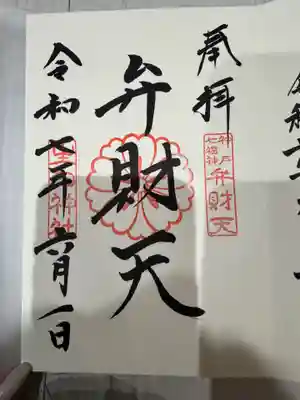 奉拝
七福神
神戸
弁財天
弁財天
令和七年六月一日
生田神社